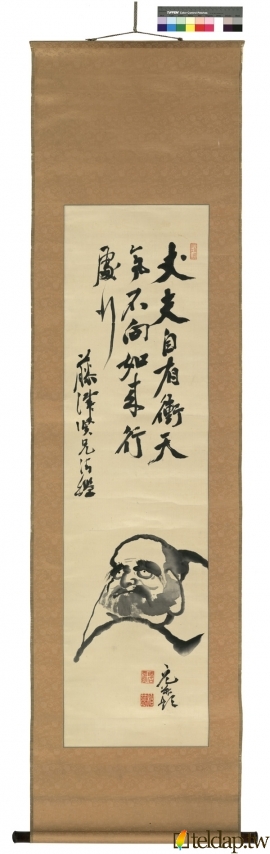 丈夫自有衝天
氣不向如來行
處行
藤澤賢兄法鑑
teldap.tw